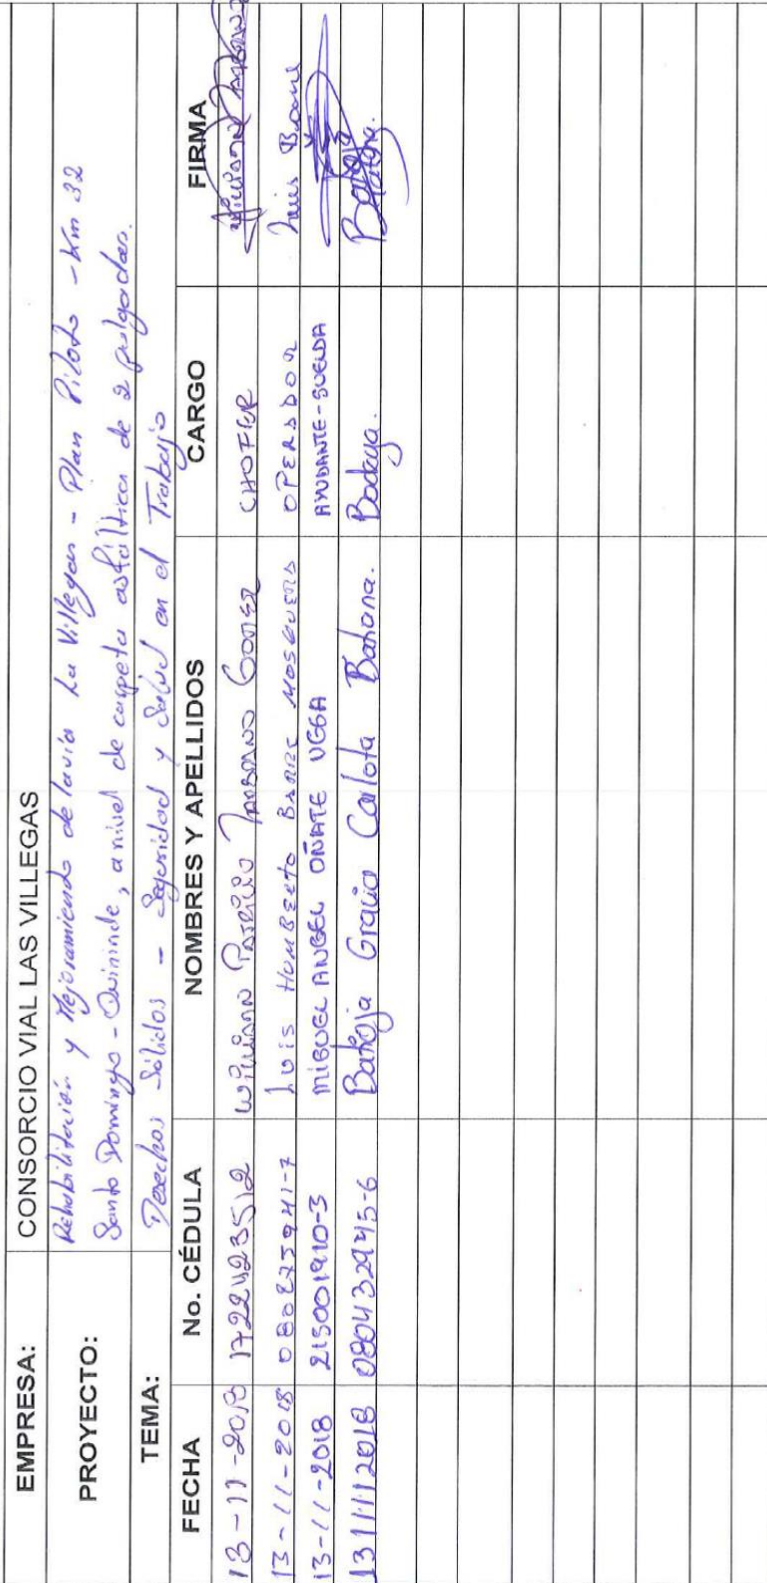 EMPRESA: CONSORCIO VIAL LAS VILLEGAS
PROYECTO: Rehabilitación y Mejoramiento de la vía La Villegas - Plan Piloto - Km 32
Santo Domingo - Quininde, a nivel de carpeta asfáltica de 2 pulgadas.
TEMA: Desechos Sólidos - Seguridad y Salud en el Trabajo
FECHA No. CÉDULA NOMBRES Y APELLIDOS CARGO FIRMA
13-11-2018 1722423512 William Patricio Gomez CHOFER
13-11-2018 080275941-7 Luis Humberto MOSQUERA OPERADOR Luis
13-11-2018 215001910-3 MIGUEL ANGEL OÑATE VEGA AYUDANTE-SUELDA
13/11/2018 080432945-6 Batioja Gracia Carlota Bahona. Bodega.